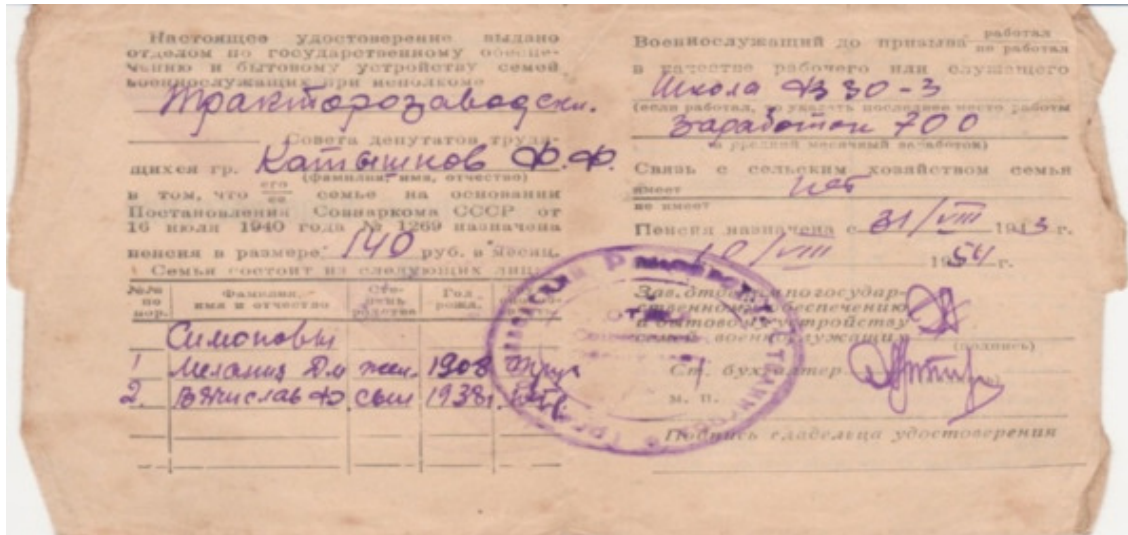 Настоящее удостоверение выдано
отделом по государственному обеспе-
чению и бытовому устройству семей
военнослужащих при исполкоме
Тракторозаводски.
Совета депутатов трудя-
щихся гр. Катышков Ф.Ф.
(фамилия, имя, отчество)
в том, что его семье на основании
ее
Постановления Совнаркома СССР от
16 июля 1940 года № 1269 назначена
пенсия в размере 140 руб. в месяц.
Семья состоит из следующих лиц:
№№ по пор. Фамилия, имя и отчество Сте-пень родства Год рожд.
Симоновы
1 Мелания Дм жен. 1908
2. Вячислав Ф. сын 1938г.
Военнослужащий до призыва работал
не работал
в качестве рабочего или служащего
Школа ФЗО-3
(если работал, то указать последнее место работы
Заработок 700
и средний месячный заработок)
Связь с сельским хозяйством семья
имеет нет
не имеет
Пенсия назначена с 31/VIII 1943 г.
10/VIII 1954 г.
Зав. отделом по государ-
ственному обеспечению
и бытовому устройству
семей военнослужащих
(подпись)
Ст. бухгалтер
М. П.
Подпись владельца удостоверения